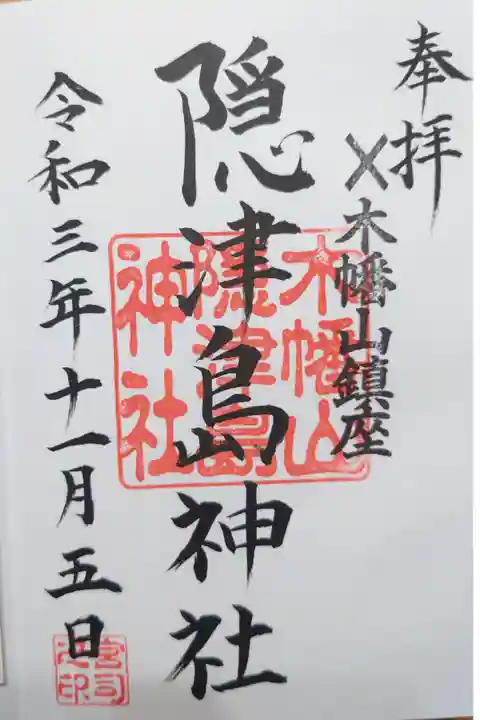 奉拝
X木幡山鎮座
隠津島神社
令和三年十一月五日
木幡山
隠津島
神社
宮司
之印